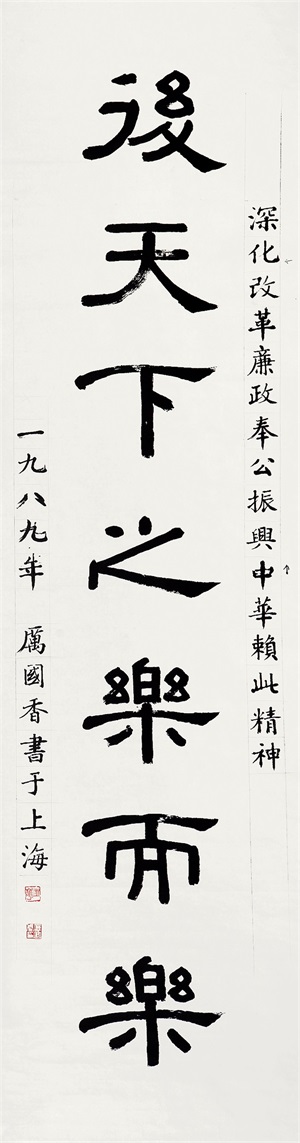 深化改革廉政奉公振興中華賴此精神
後天下之樂而樂
一九八九年 厲國香書于上海